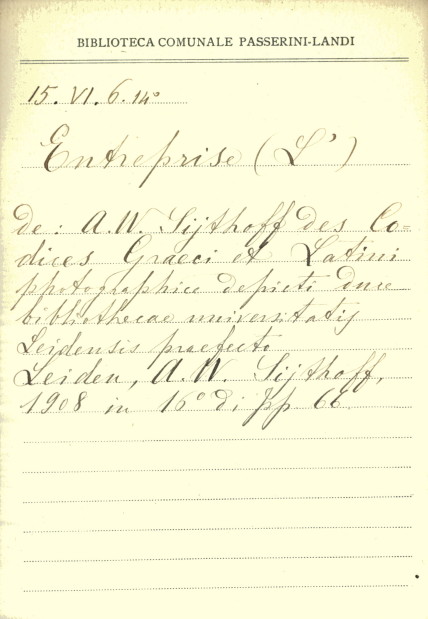 BIBLIOTECA COMUNALE PASSERINI-LANDI
15. VI. 6. 14º
Entreprise (L')
de: A.W. Sijthoff des Co=
dices Graeci et Latini
photographice depicti duce
bibliothecae universitatis
Leidensis praefecto
Leiden, A.W. Sijthoff,
1908 in 16º di pp 66